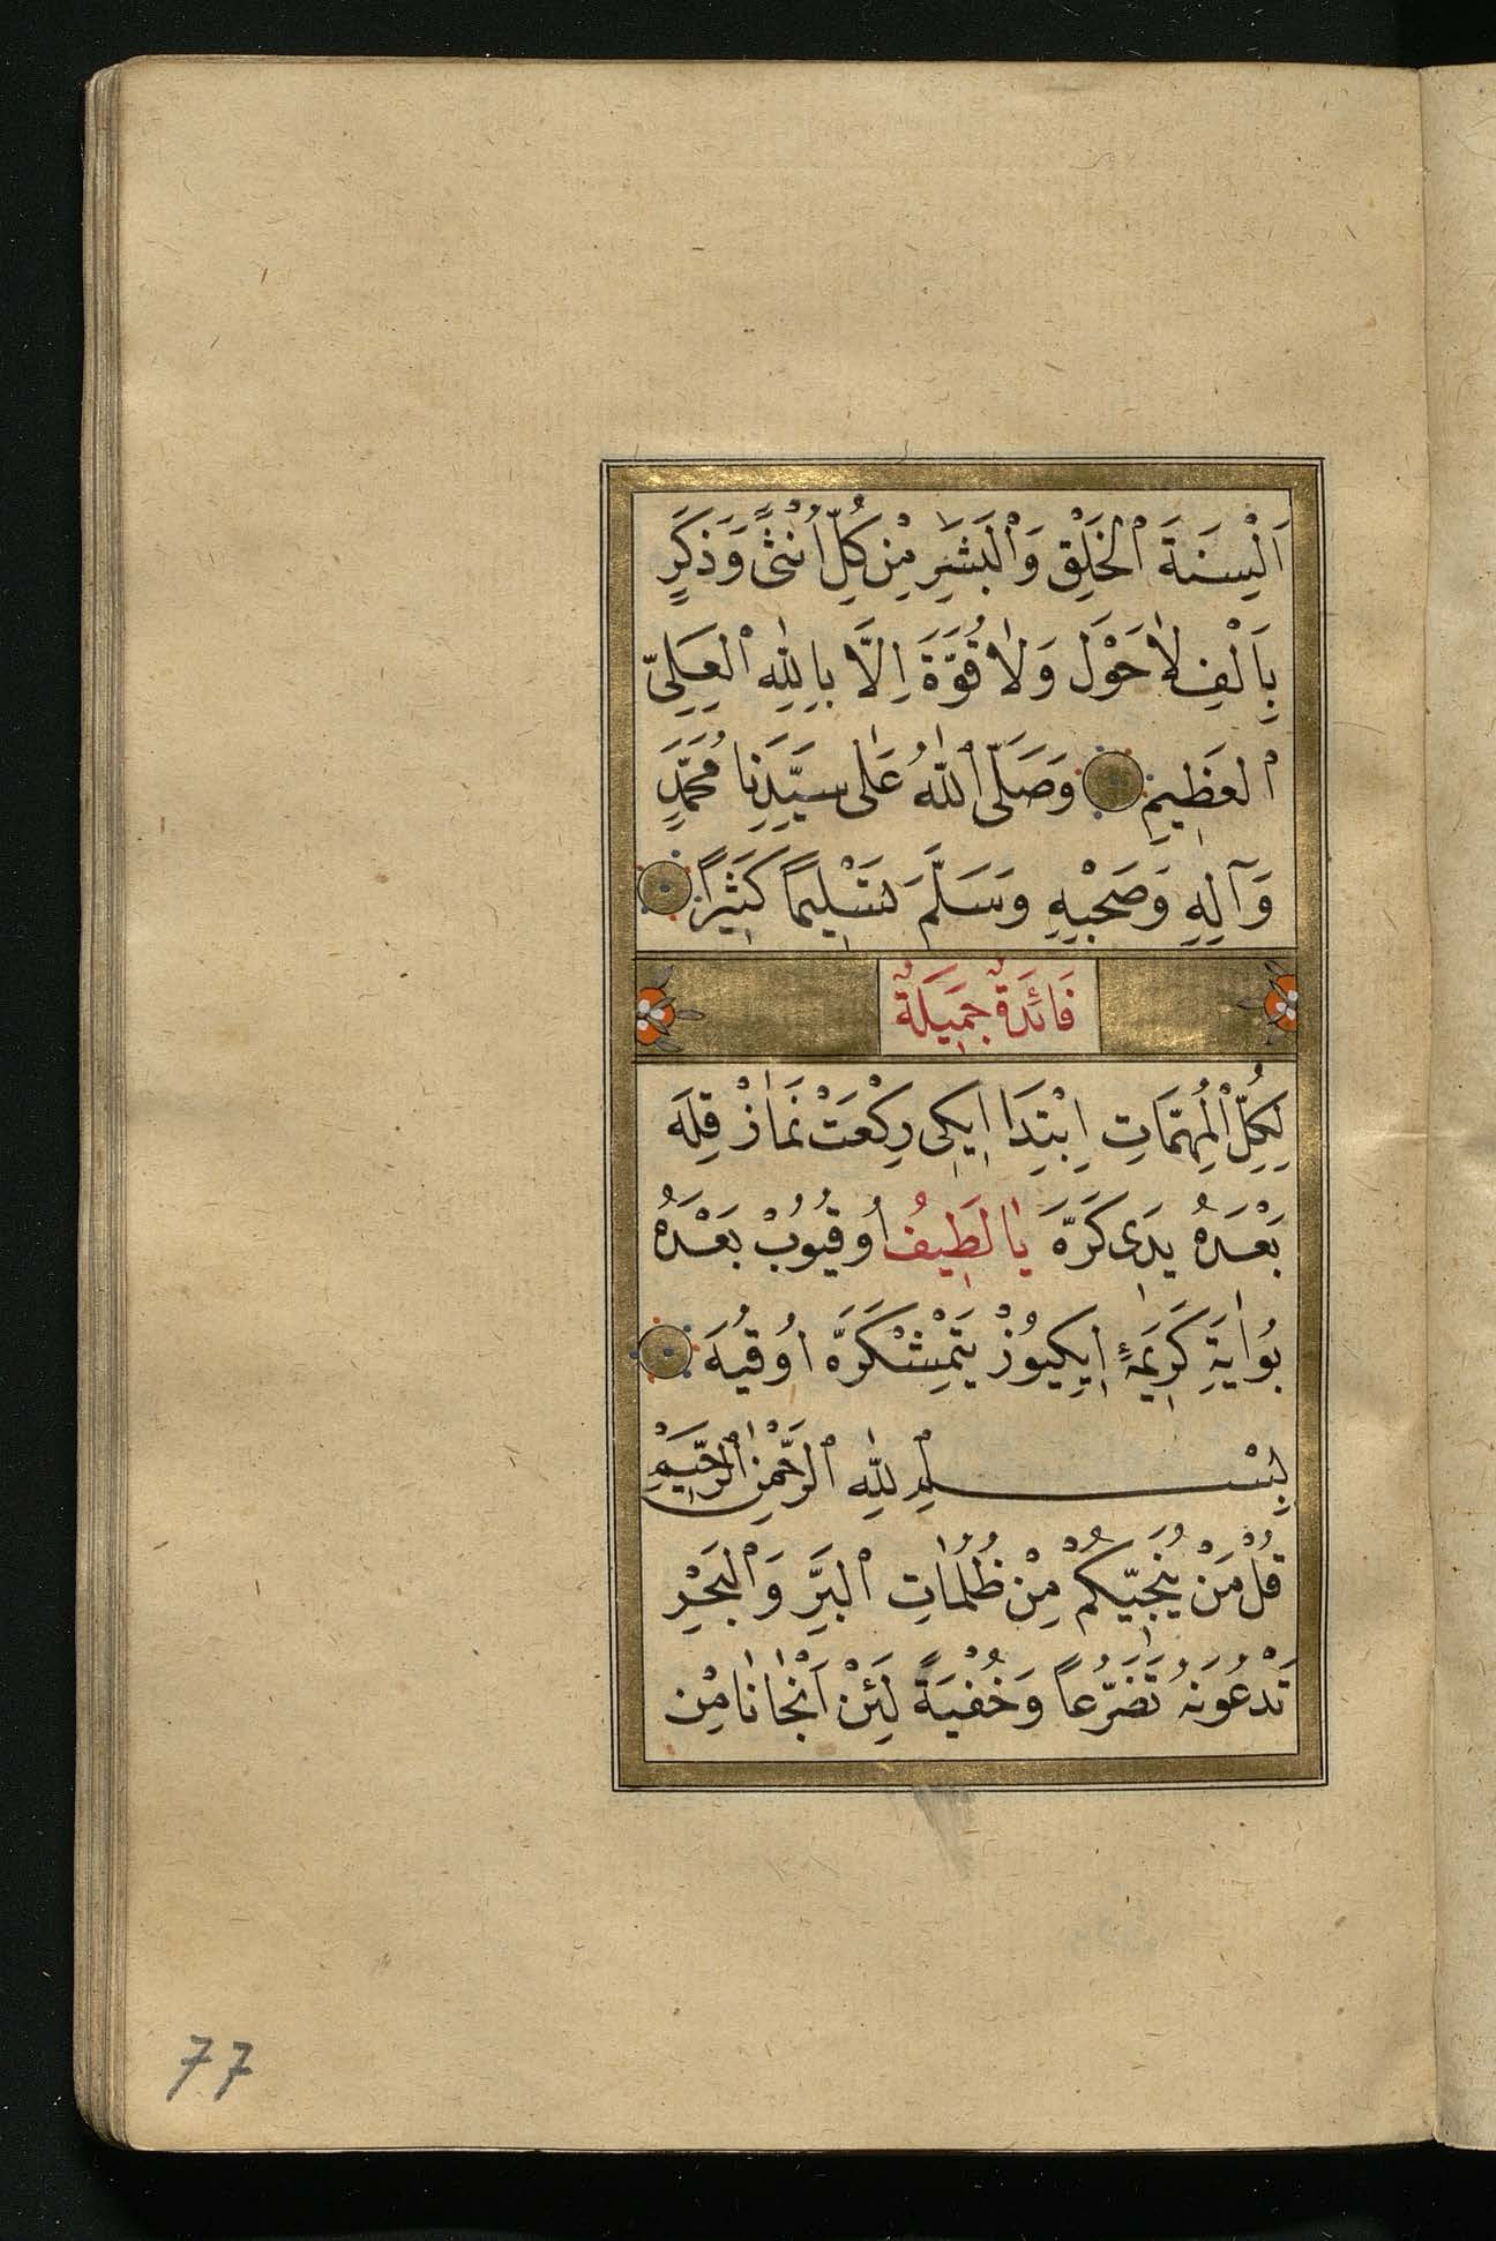 اَلْسِنَةَ الْخَلْقِ وَالْبَشَرِ مِنْ كُلِّ اُنْثٰى وَذَكَرٍ
بِاَلْفِ لَا حَوْلَ وَلَا قُوَّةَ اِلَّا بِاللّٰهِ الْعَلِىِّ
الْعَظِيمِ وَصَلَّى اللّٰهُ عَلٰى سَيِّدِنَا مُحَمَّدٍ
وَآلِهِ وَصَحْبِهِ وَسَلَّمَ تَسْلِيمًا كَثِيرًا
فَائِدَةٌ جَمِيلَةٌ
لِكُلِّ الْمُهِمَّاتِ اِبْتِدَا اِيكِى رِكْعَتْ نَمَازْ قِلَه
بَعْدَهُ يَدِى كَرَّه يَا لَطِيفُ اُوقُيُوبْ بَعْدَهُ
بُو اٰيَةِ كَرِيمَهِٔ اِيكِيوُزْ يَتْمِشْ كَرَّه اُوقُيَه
بِسْمِ اللّٰهِ الرَّحْمٰنِ الرَّحِيمِ
قُلْ مَنْ يُنَجِّيكُمْ مِنْ ظُلُمَاتِ الْبَرِّ وَالْبَحْرِ
تَدْعُونَهُ تَضَرُّعًا وَخُفْيَةً لَئِنْ اَنْجَانَا مِنْ
77